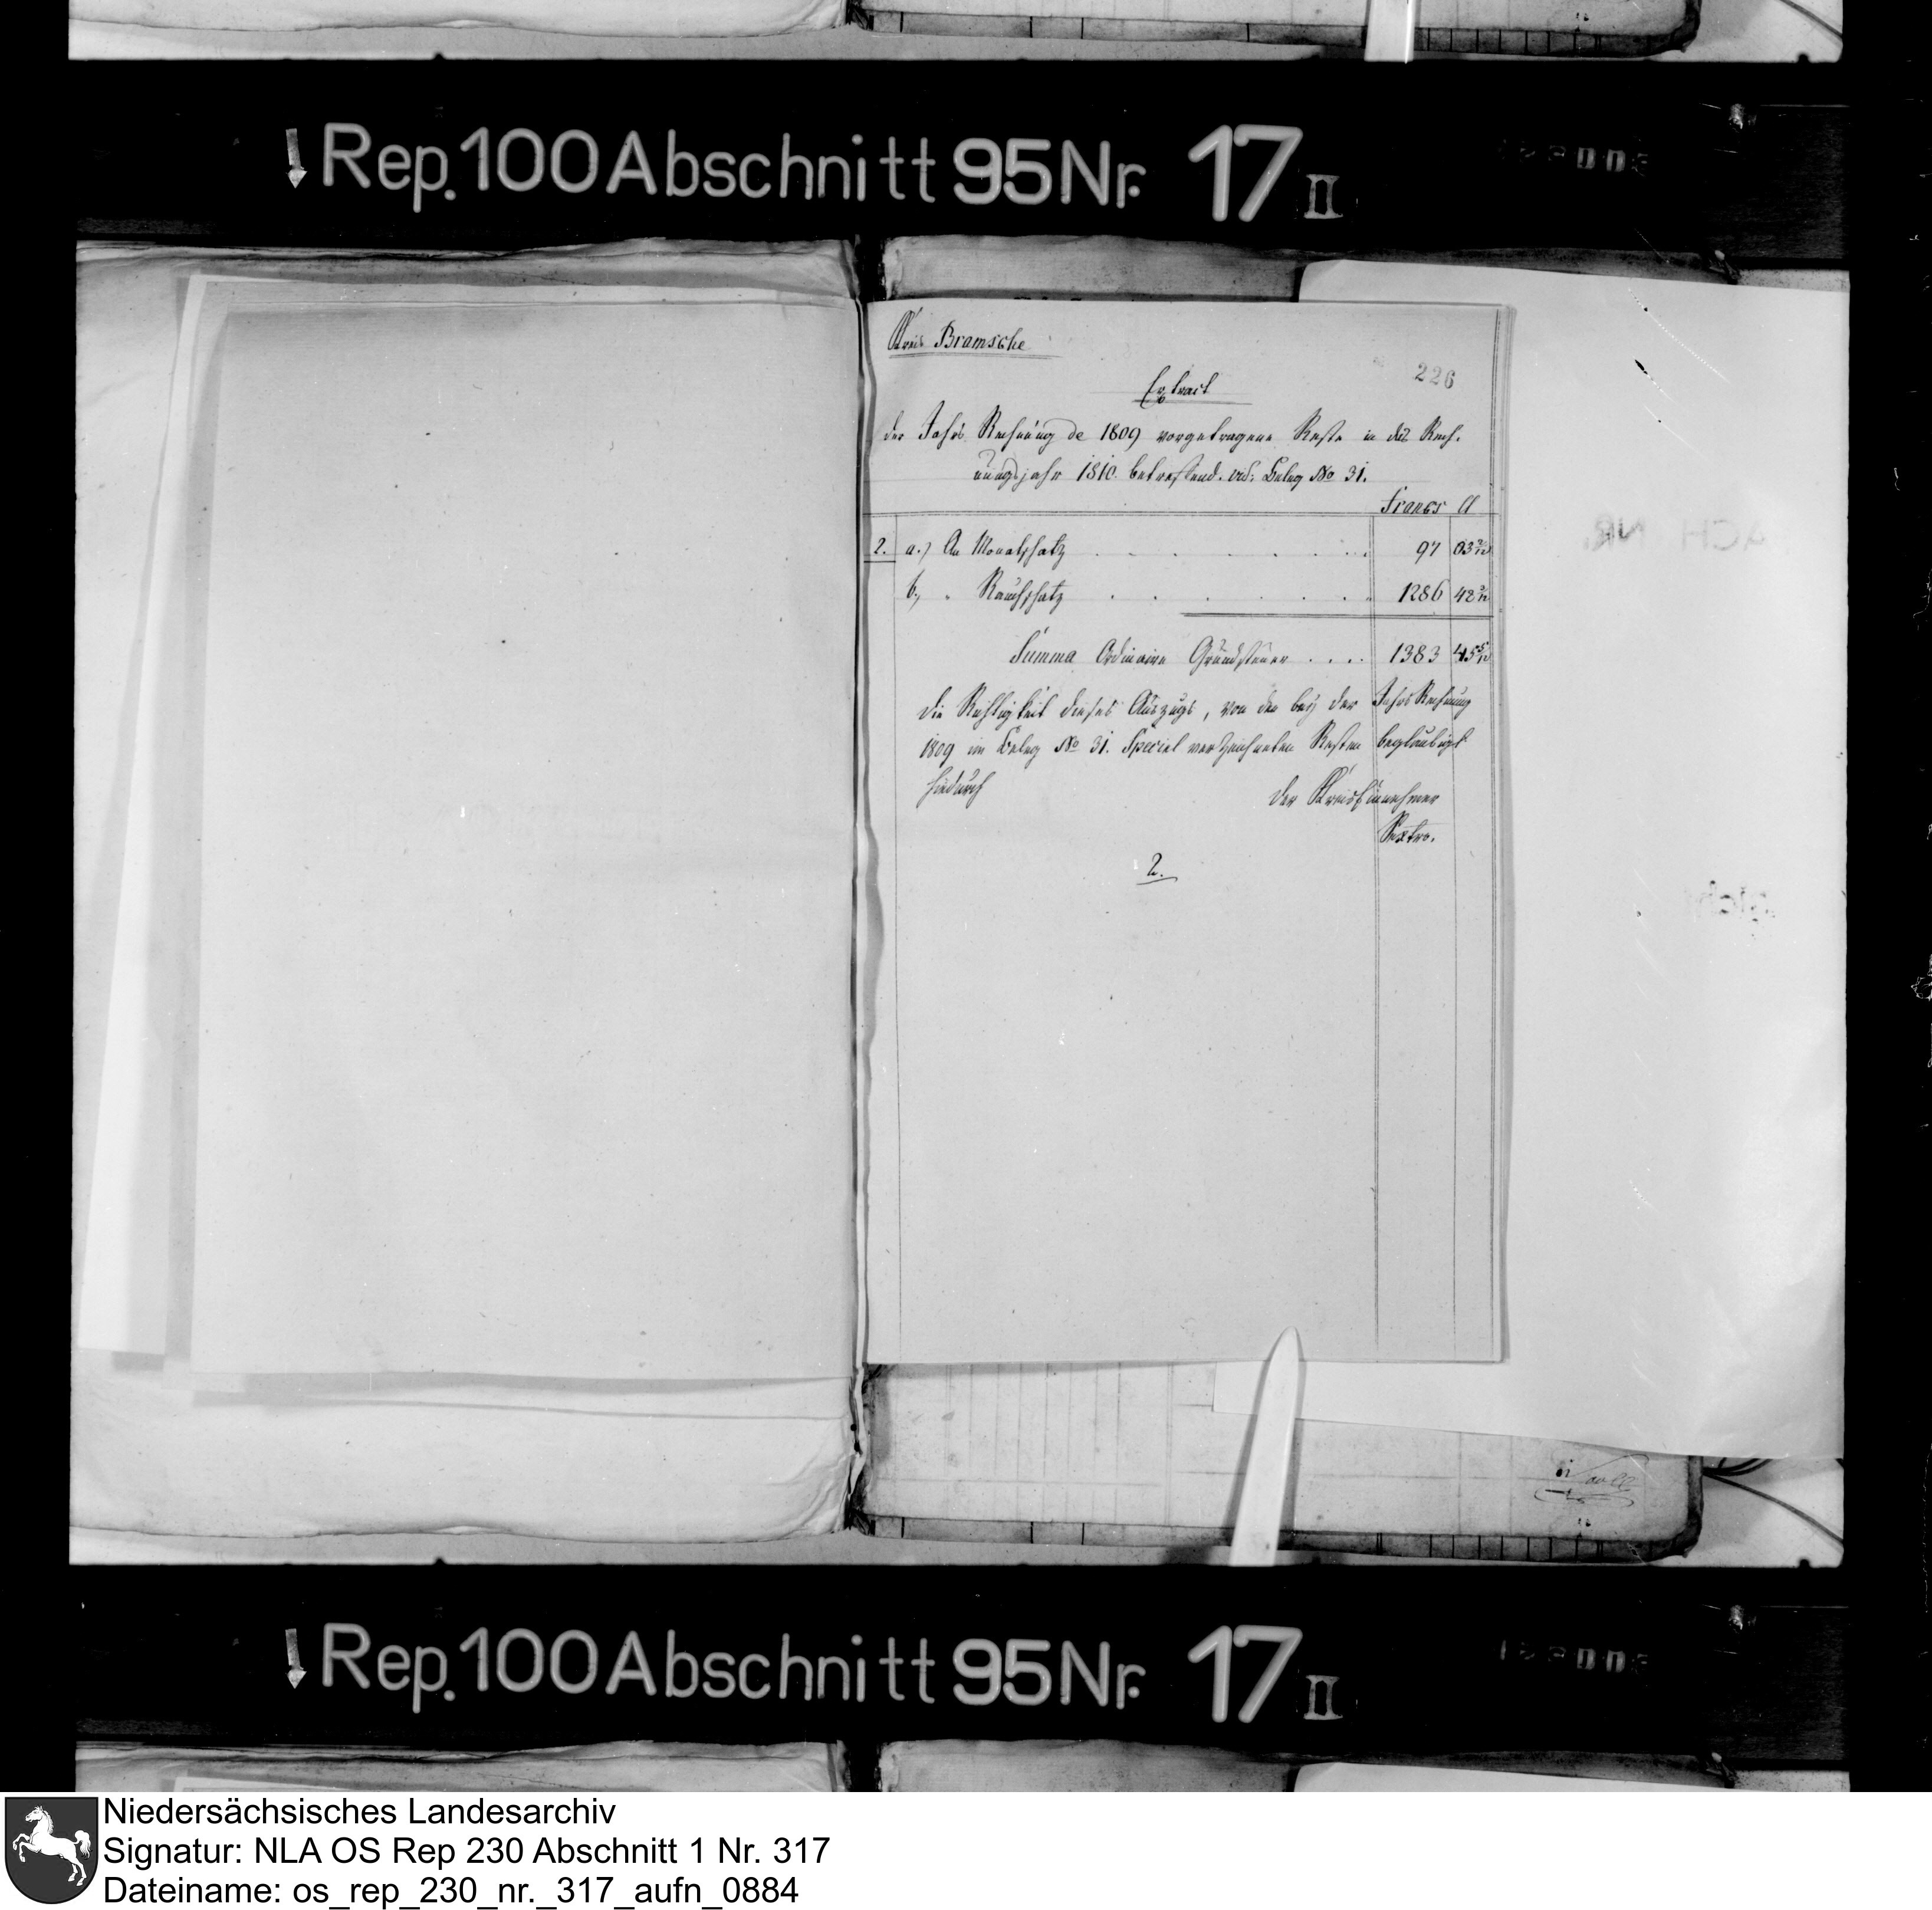 Rep. 100 Abschnitt 95 Nr. 17 II
Kreis Bramsche
226
Extract
der Jahrs Rechnung de 1809 vorgetragene Reste in das Rech-
nungsjahr 1810. betreffend. vid: Beleg No 31.
Francs Ct
2. a.) An Monatschatz . . . . . . . 97 03 2/12
b., " Rauchschatz . . . . . . . 1286 42 3/12
Summa Ordinaire Grundsteuer . . . . 1383 45 5/12
Die Richtigkeit dieses Auszugs, von den bey der Jahrs Rechnung
1809 im Beleg No 31. Speciel verzeichneten Resten beglaubigt
hiedurch
Der Kreiseinnehmer
Sextro.
2.
Rep. 100 Abschnitt 95 Nr. 17 II
Niedersächsisches Landesarchiv
Signatur: NLA OS Rep 230 Abschnitt 1 Nr. 317
Dateiname: os_rep_230_nr._317_aufn_0884